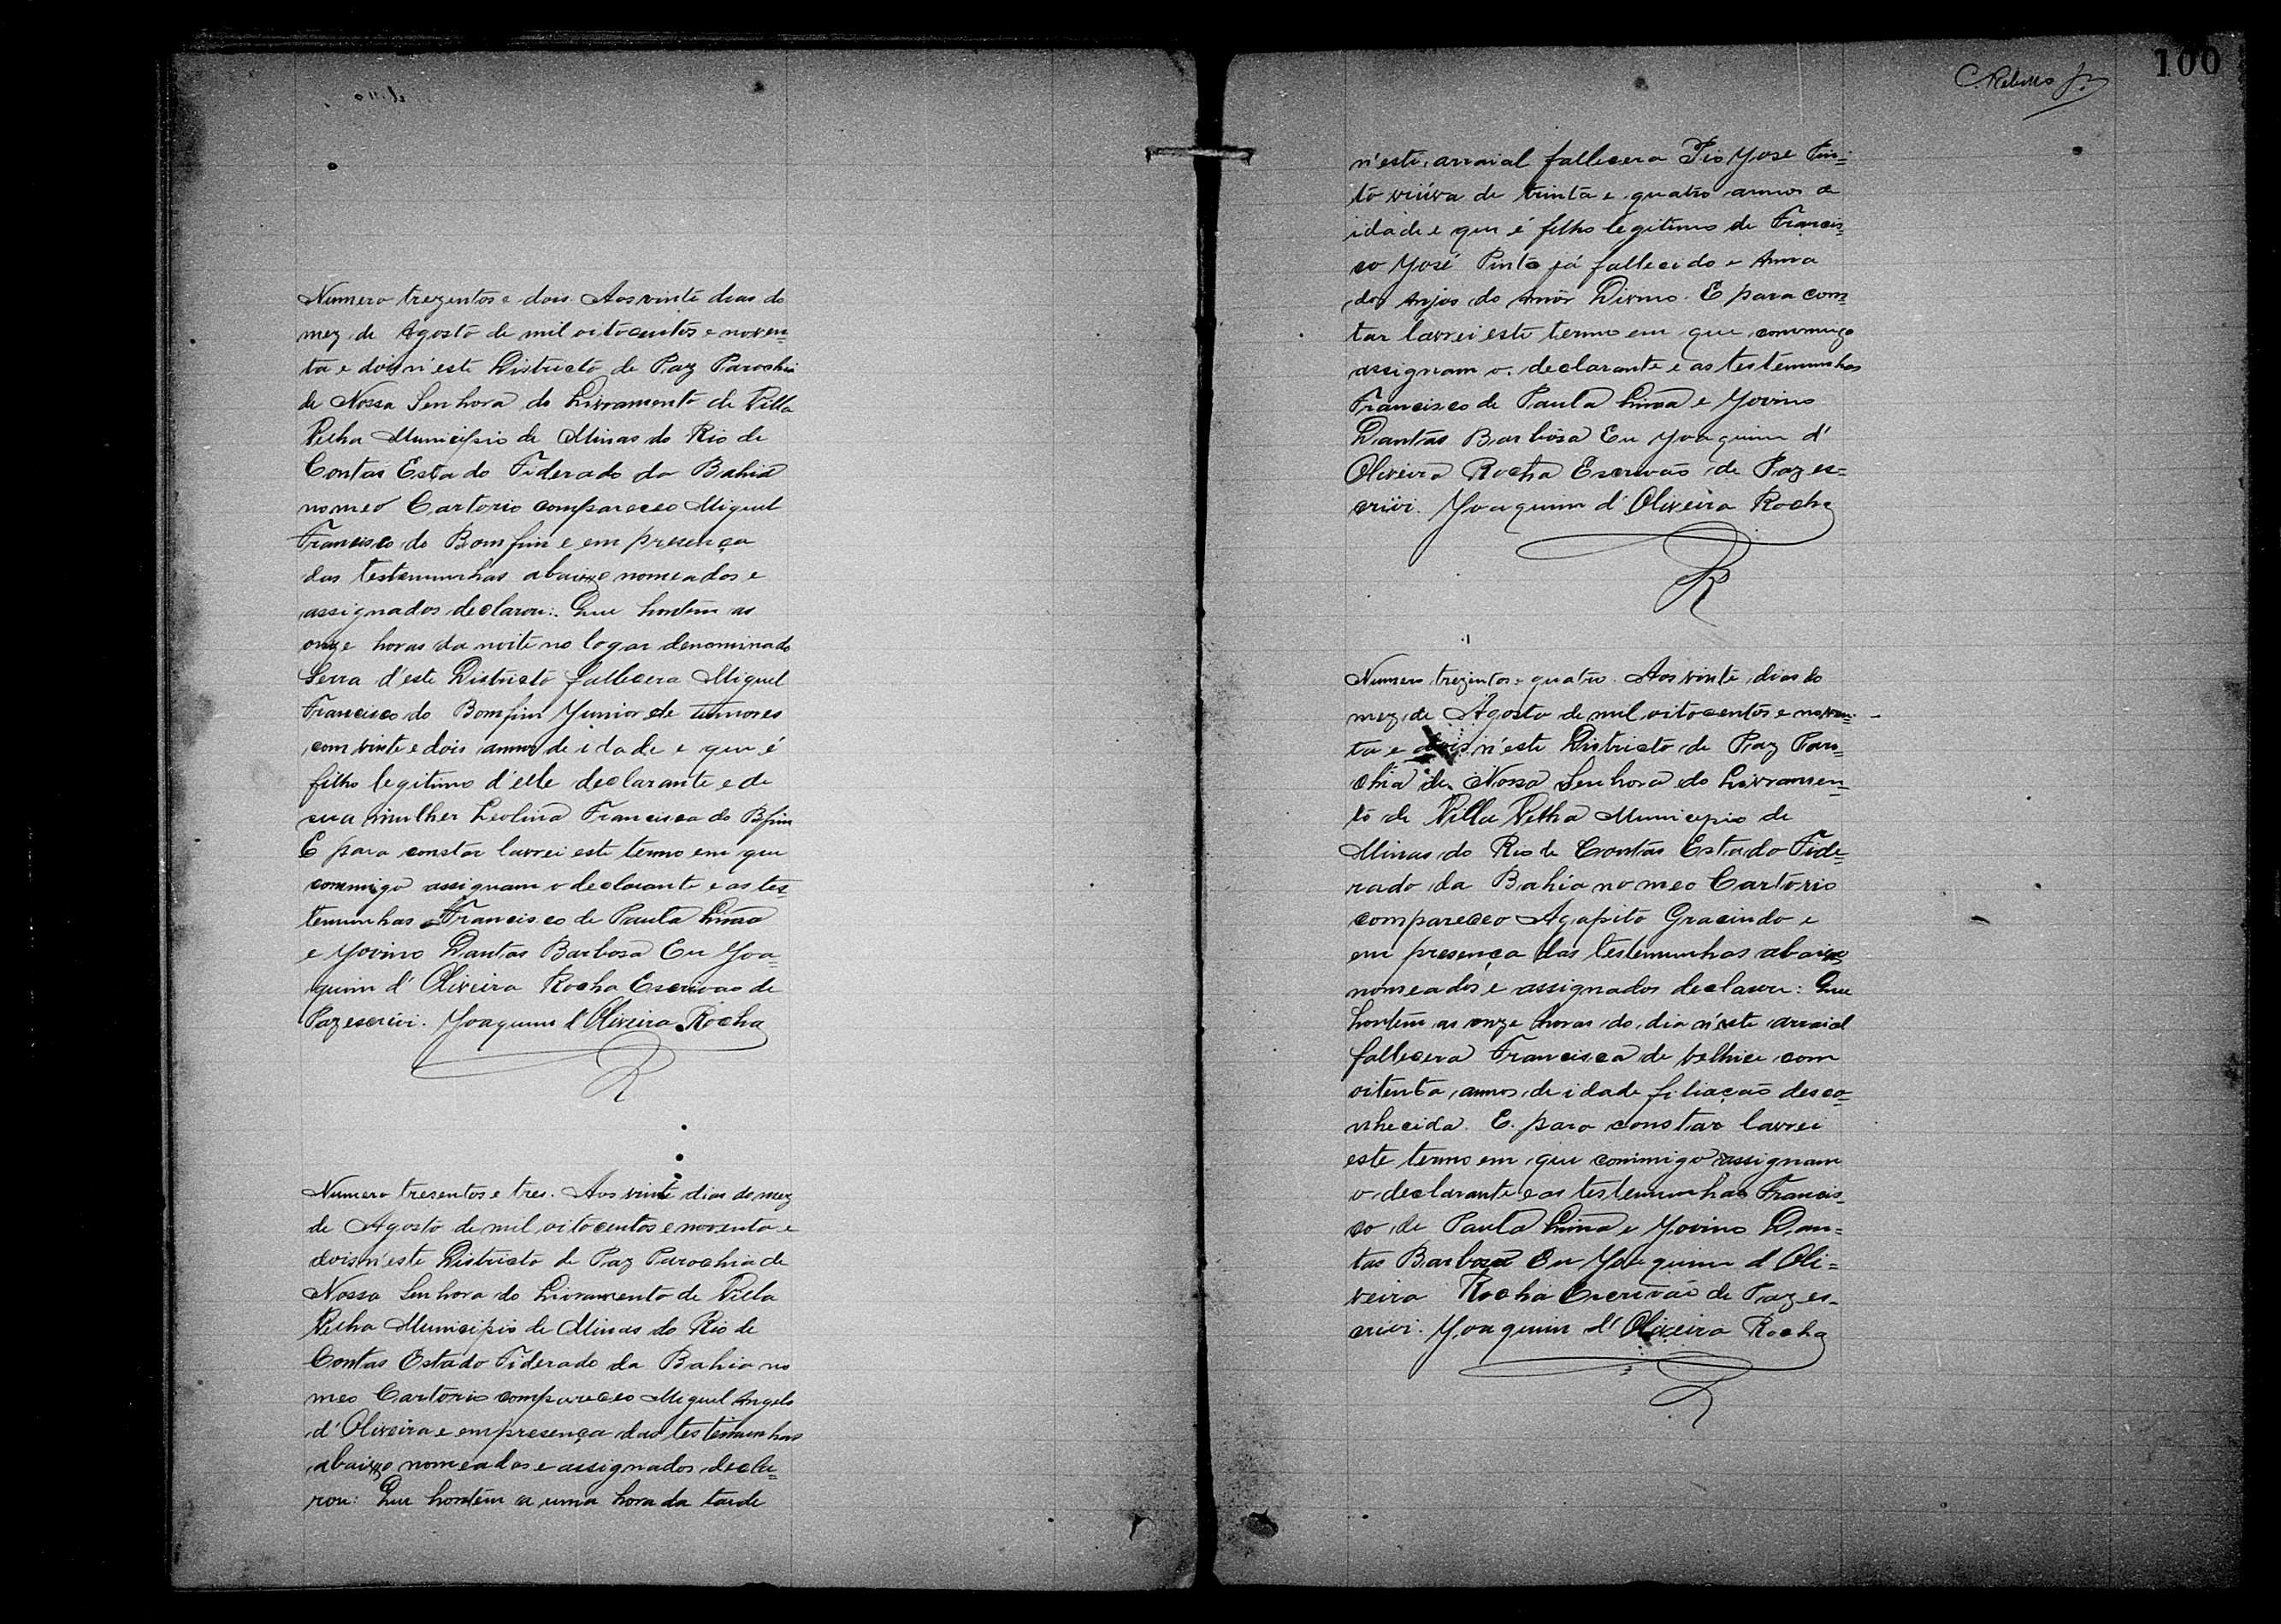 Numero trezentos e dois. Aos vinte dias do
mez de Agosto de mil oitocentos e noven=
ta e dois n'este Districto de Paz Parochia
de Nossa Senhora do Livramento de Villa
Velha Municipio de Minas do Rio de
Contas Estado Fiderado da Bahia
no meo Cartorio compareceo Miguel
Francisco do Bomfim e em presença
das testemunhas abaixo nomeados e
assignados declarou: Que hontem as
onze horas da noite no logar denominado
Serra d'este Districto fallecera Miguel
Francisco do Bomfim Yunior de tumores
com vinte e dois annos de idade e que é
filho legitimo d'elle declarante e de
sua mulher Leolina Francisca do Bfim
E para constar lavrei este termo em que
commigo assignam o declarante e as tes=
temunhas Francisco de Paula Lima
e Yovino Dantas Barbosa Eu Yoa=
quim d'Oliveira Rocha Escrivao de
Paz escrivi. Yoaquim d'Oliveira Rocha
R
Numero tresentos e tres. Aos vinte dias do mez
de Agosto de mil oitocentos e noventa e
dois n'este Districto de Paz Parochia de
Nossa Senhora do Livramento de Villa
Velha Municipio de Minas do Rio de
Contas Estado Fiderado da Bahia no
meo Cartorio compareceo Miguel Angelo
d'Oliveira e em presença das testemunhas
abaixo nomeados e assignados decla=
rou: Que hontem a uma hora da tarde
100
C. Rebello Jr
n'este arraial fallecera Pio Yose Pin=
to viúva de trinta e quatro annos de
idade e que é filho legitimo de Francis=
co Yosé Pinto já fallecido e Anna
dos Anjos do Amôr Divino. E para cons=
tar lavrei este termo em que commigo
assignam o declarante e as testemunhas
Francisco de Paula Lima e Yovino
Dantas Barbosa Eu Yoaquim d'
Oliveira Rocha Escrivão de Paz es=
crivi. Yoaquim d'Oliveira Rocha
R
Numero trezentos e quatro. Aos vinte dias do
mez de Agosto de mil oitocentos e noven=
ta e dois n'este Districto de Paz Paro=
chia de Nossa Senhora do Livramen=
to de Villa Velha Municipio de
Minas do Rio de Contas Estado Fide=
rado da Bahia no meo Cartorio
compareceo Agapito Gracindo e
em presença das testemunhas abaixo
nomeados e assignados declarou: Que
hontem as onze horas do dia n'este arraial
fallecera Francisca de velhice com
oitenta annos de idade filiação desco=
nhecida. E para constar lavrei
este termo em que commigo assignam
o declarante e as testemunhas Francis=
co de Paula Lima e Yovino Dan=
tas Barbosa Eu Yoaquim d'Oli=
veira Rocha Escrivão de Paz es=
crivi. Yoaquim d'Oliveira Rocha
R